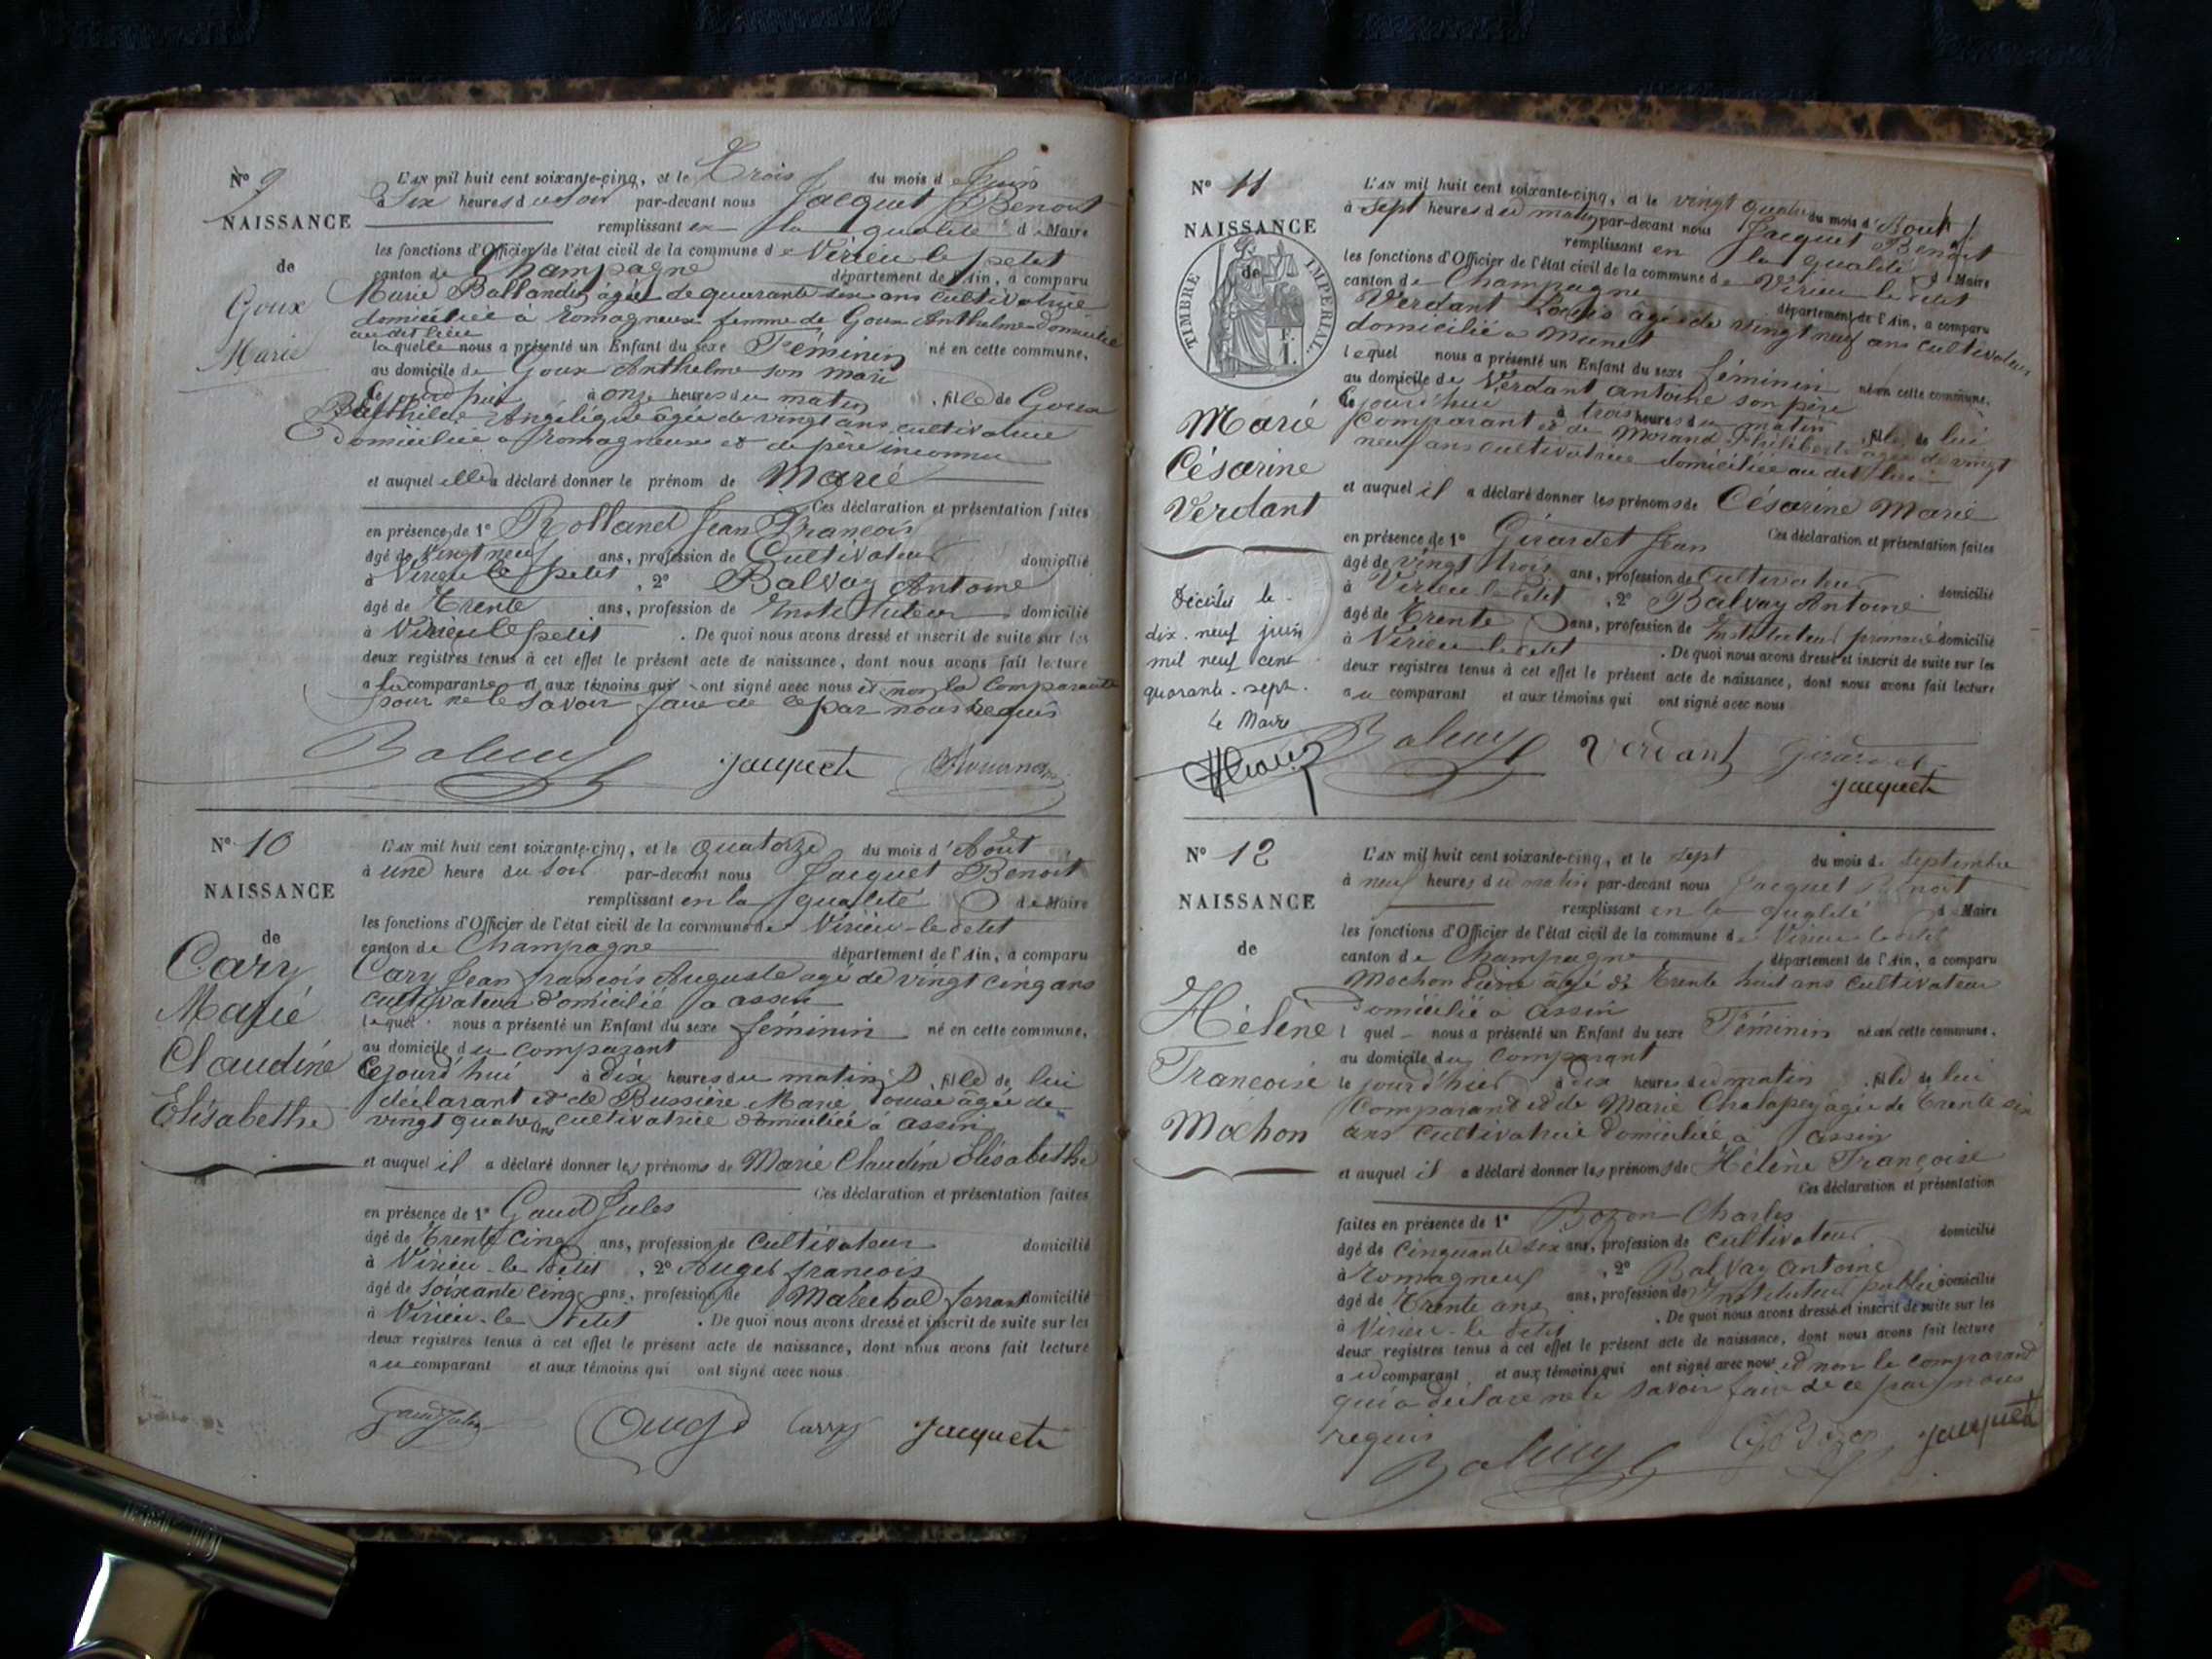 N° 9
NAISSANCE
de
Goux
Marie
L'AN mil huit cent soixante-cinq, et le Trois du mois de Juin
à Six heures du soir par-devant nous Jacquet Benoit
remplissant en la qualité de Maire
les fonctions d'Officier de l'état civil de la commune de Virieu le petit
canton de Champagne département de l'Ain, a comparu
Marie Ballandey âgée de quarante six ans cultivatrice
domiciliée à Romagneux femme de Goux Anthelme domicilié
au dit lieu
laquelle nous a présenté un Enfant du sexe Féminin né en cette commune,
au domicile de Goux Anthelme son mari
Ce jourd'hui à onze heures du matin, fille de Goux
Balthilde Angélique âgée de vingt ans cultivatrice
Domiciliée à Romagneux et de père inconnu
et auquel elle a déclaré donner le prénom de Marie
Ces déclaration et présentation faites
en présence de 1° Rolland Jean François
âgé de vingt neuf ans, profession de Cultivateur domicilié
à Virieu le petit, 2° Balvay Antoine
âgé de Trente ans, profession de Instituteur domicilié
à Virieu le petit. De quoi nous avons dressé et inscrit de suite sur les
deux registres tenus à cet effet le présent acte de naissance, dont nous avons fait lecture
a la comparante et aux témoins qui ont signé avec nous et non la Comparante
pour ne le savoir faire de ce par nous requis
Balvay Jacquet
N° 10
NAISSANCE
de
Cary
Marie
Claudine
Elisabethe
L'AN mil huit cent soixante-cinq, et le quatorze du mois d'Août
à une heure du soir par-devant nous Jacquet Benoit
remplissant en la qualité de Maire
les fonctions d'Officier de l'état civil de la commune de Virieu-le Petit
canton de Champagne département de l'Ain, a comparu
Cary Jean françois Auguste agé de vingt cinq ans
cultivateur domicilié à assin
lequel nous a présenté un Enfant du sexe féminin né en cette commune,
au domicile du comparant
Cejourd'hui à dix heures du matin, fille de lui
déclarant et de Bussière Marie Louise âgée de
vingt quatre ans cultivatrice domiciliée à assin
et auquel il a déclaré donner les prénoms de Marie Claudine Elisabethe
Ces déclaration et présentation faites
en présence de 1° Gaud Jules
âgé de Trente cinq ans, profession de Cultivateur domicilié
à Virieu-le Petit, 2° Auger françois
âgé de soixante cinq ans, profession de Maréchal ferrant domicilié
à Virieu-le Petit. De quoi nous avons dressé et inscrit de suite sur les
deux registres tenus à cet effet le présent acte de naissance, dont nous avons fait lecture
au comparant et aux témoins qui ont signé avec nous
Gaud Jules Auger Carry Jacquet
N° 11
NAISSANCE
de
TIMBRE IMPERIAL.
Marie
Césarine
Verdant
Décédée le
dix-neuf juin
mil neuf cent
quarante-sept.
le Maire
L'AN mil huit cent soixante-cinq, et le vingt quatre du mois d'Aout
à sept heures du matin par-devant nous Jacquet Benoit
remplissant en la qualité de Maire
les fonctions d'Officier de l'état civil de la commune de Virieu le Petit
canton de Champagne département de l'Ain, a comparu
Verdant Louis âgé de vingt neuf ans cultivateur
domicilié à Munet
lequel nous a présenté un Enfant du sexe féminin né en cette commune,
au domicile de Verdant antoine son père
Ce jourd'hui à trois heures du matin, fille de lui
Comparant et de Morand Philiberte âgée de vingt
neuf ans cultivatrice domiciliée au dit lieu
et auquel il a déclaré donner les prénoms de Césarine Marie
Ces déclaration et présentation faites
en présence de 1° Girardet Jean
âgé de vingt trois ans, profession de Cultivateur domicilié
à Virieu le Petit, 2° Balvay Antoine
âgé de Trente ans, profession de Instituteur primaire domicilié
à Virieu le petit. De quoi nous avons dressé et inscrit de suite sur les
deux registres tenus à cet effet le présent acte de naissance, dont nous avons fait lecture
au comparant et aux témoins qui ont signé avec nous
Balvay Verdant Girardet
Jacquet
N° 12
NAISSANCE
de
Hélène
Françoise
Mochon
L'AN mil huit cent soixante-cinq, et le sept du mois de septembre
à neuf heures du matin par-devant nous Jacquet Benoit
remplissant en la qualité de Maire
les fonctions d'Officier de l'état civil de la commune de Virieu le Petit
canton de Champagne département de l'Ain, a comparu
Mochon âgé de Trente huit ans Cultivateur
Domicilié à assin
lequel nous a présenté un Enfant du sexe Féminin né en cette commune,
au domicile du Comparant
le jourd'hier à dix heures du matin, fille de lui
Comparand et de Marie Chalapey âgée de Trente six
ans Cultivatrice domiciliée à assin
et auquel il a déclaré donner les prénoms de Hélène Françoise
Ces déclaration et présentation
faites en présence de 1° Bozon Charles
âgé de Cinquante six ans, profession de cultivateur domicilié
à Romagneux, 2° Balvay antoine
âgé de Trente ans ans, profession de Instituteur public domicilié
à Virieu-le Petit. De quoi nous avons dressé et inscrit de suite sur les
deux registres tenus à cet effet le présent acte de naissance, dont nous avons fait lecture
au comparant et aux témoins qui ont signé avec nous et non le comparand
qui a déclaré ne le savoir faire de ce par nous
requis
Balvay Jacquet